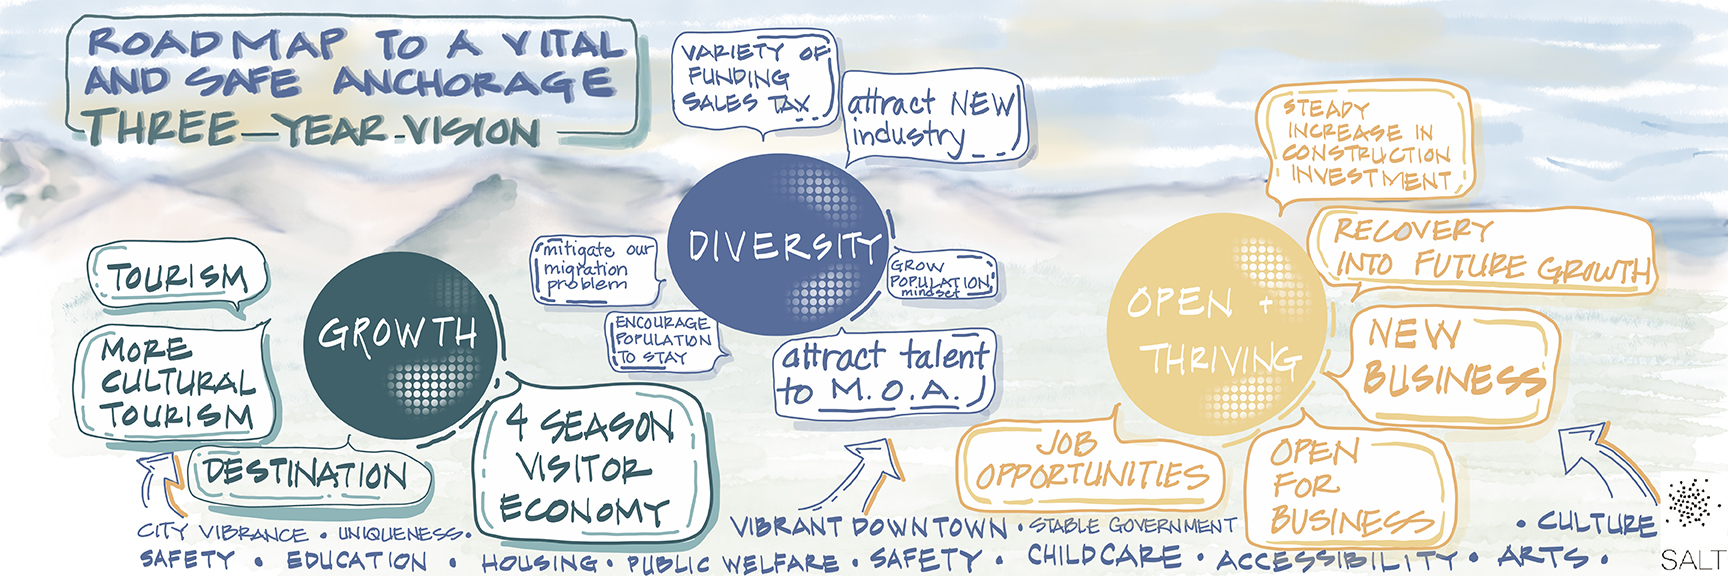 ROADMAP TO A VITAL
AND SAFE ANCHORAGE
THREE-YEAR-VISION
TOURISM
MORE
CULTURAL
TOURISM
DESTINATION
GROWTH
4 SEASON
VISITOR
ECONOMY
VARIETY OF
FUNDING
SALES TAX
attract NEW
industry
DIVERSITY
mitigate our
migration
problem
ENCOURAGE
POPULATION
TO STAY
GROW
POPULATION
mindset
attract talent
to M.O.A.
STEADY
INCREASE IN
CONSTRUCTION
INVESTMENT
RECOVERY
INTO FUTURE GROWTH
OPEN +
THRIVING
NEW
BUSINESS
JOB
OPPORTUNITIES
OPEN
FOR
BUSINESS
CITY VIBRANCE • UNIQUENESS •
VIBRANT DOWNTOWN • STABLE GOVERNMENT
• CULTURE
SAFETY • EDUCATION • HOUSING • PUBLIC WELFARE • SAFETY • CHILDCARE • ACCESSIBILITY • ARTS •
SALT